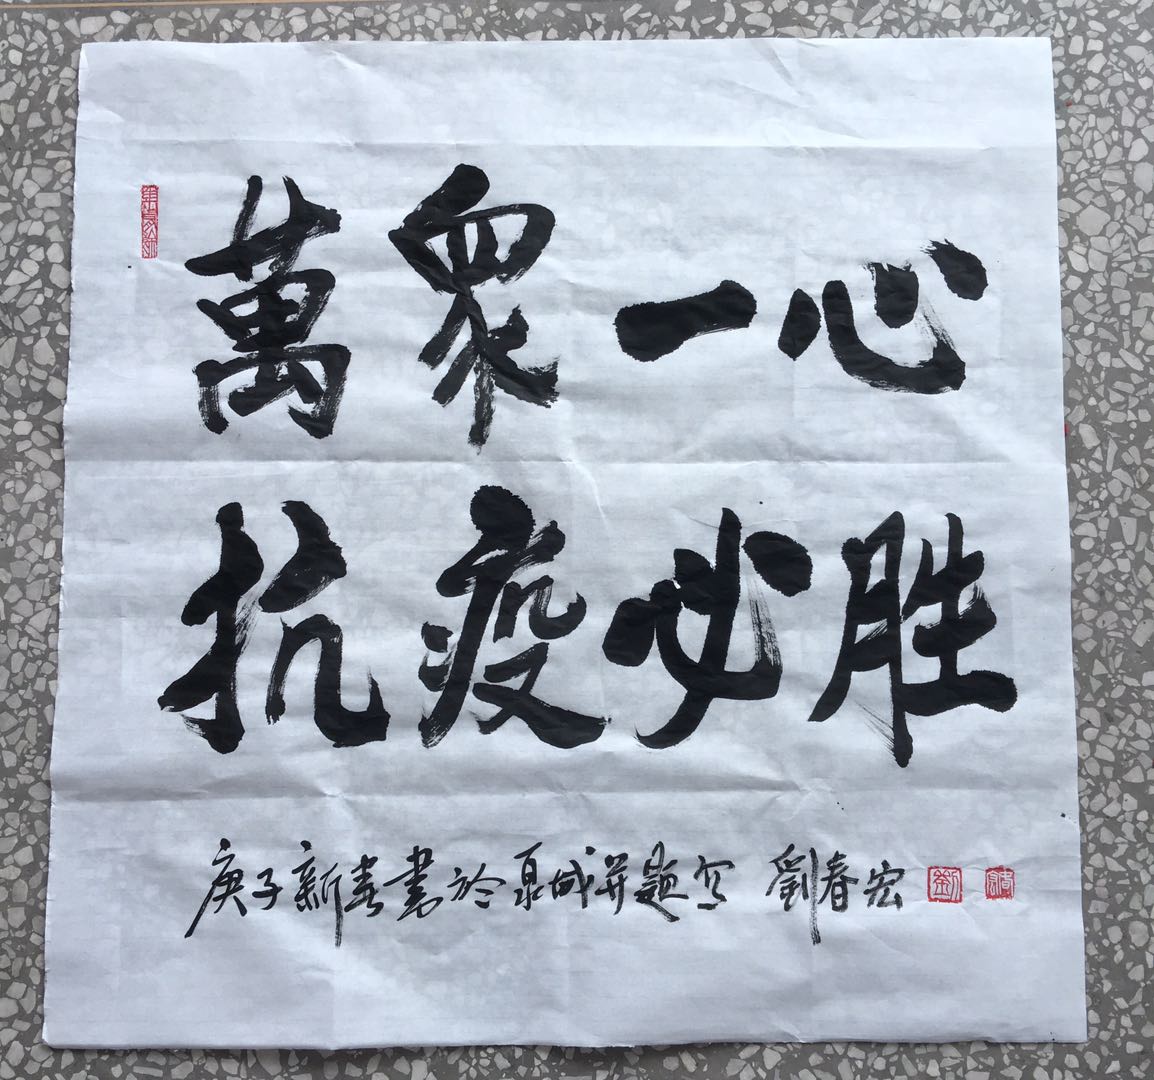 萬眾一心
抗疫必胜
庚子新春書於泉城并題写 劉春宏